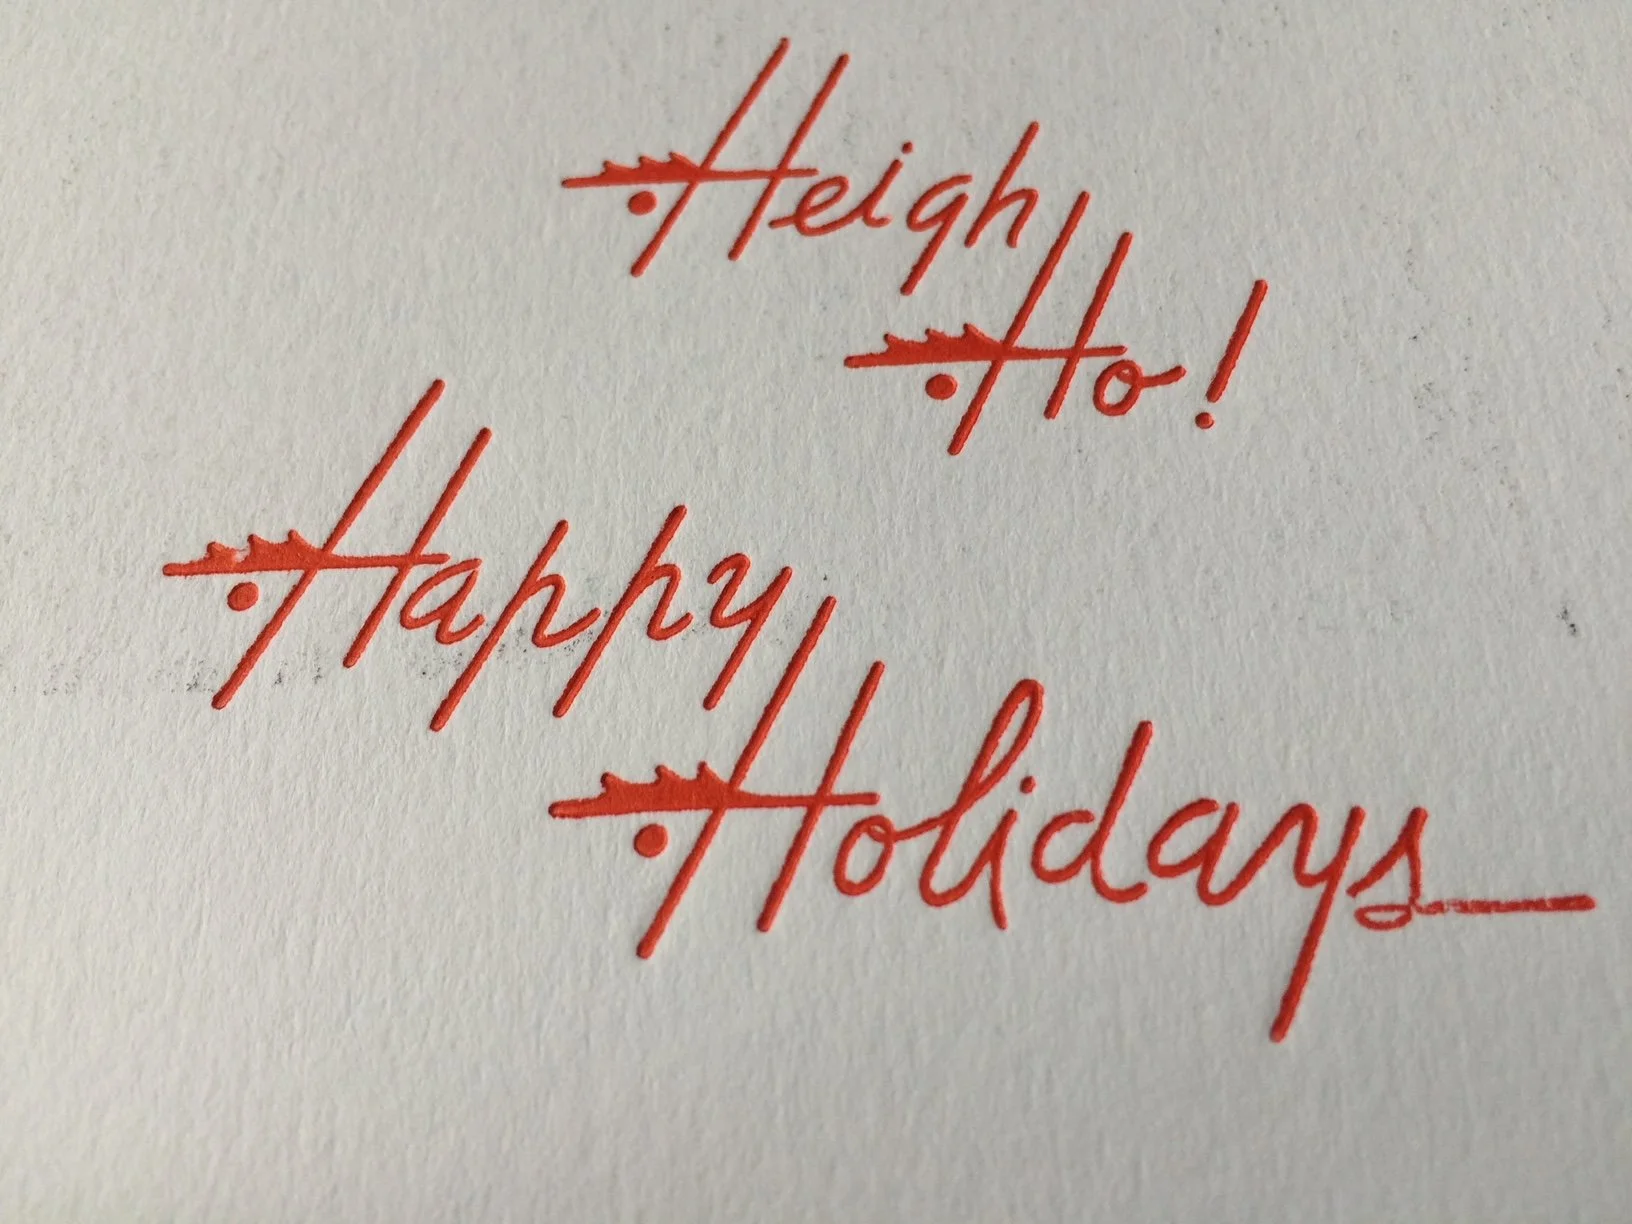 Heigh
Ho!
Happy
Holidays